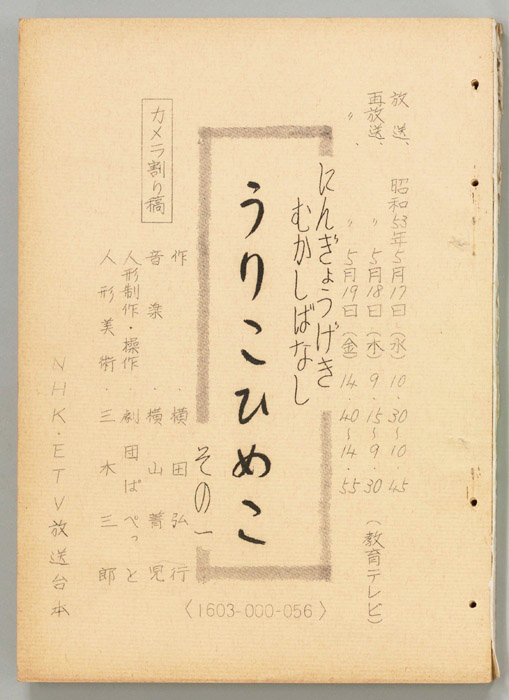 放送、昭和53年5月17日（水）10・30～10・45
再放送、〃 5月18日（木）9・15～9・30（教育テレビ）
〃、〃 5月19日（金）14・40～14・55
にんぎょうげき
むかしばなし
うりこひめこ
その一
作・横田弘行
音楽・横山菁児
人形制作・操作・劇団ぱぺっと
人形美術・三木三郎
カメラ割り稿
NHK・ETV放送台本
〈1603-000-056〉